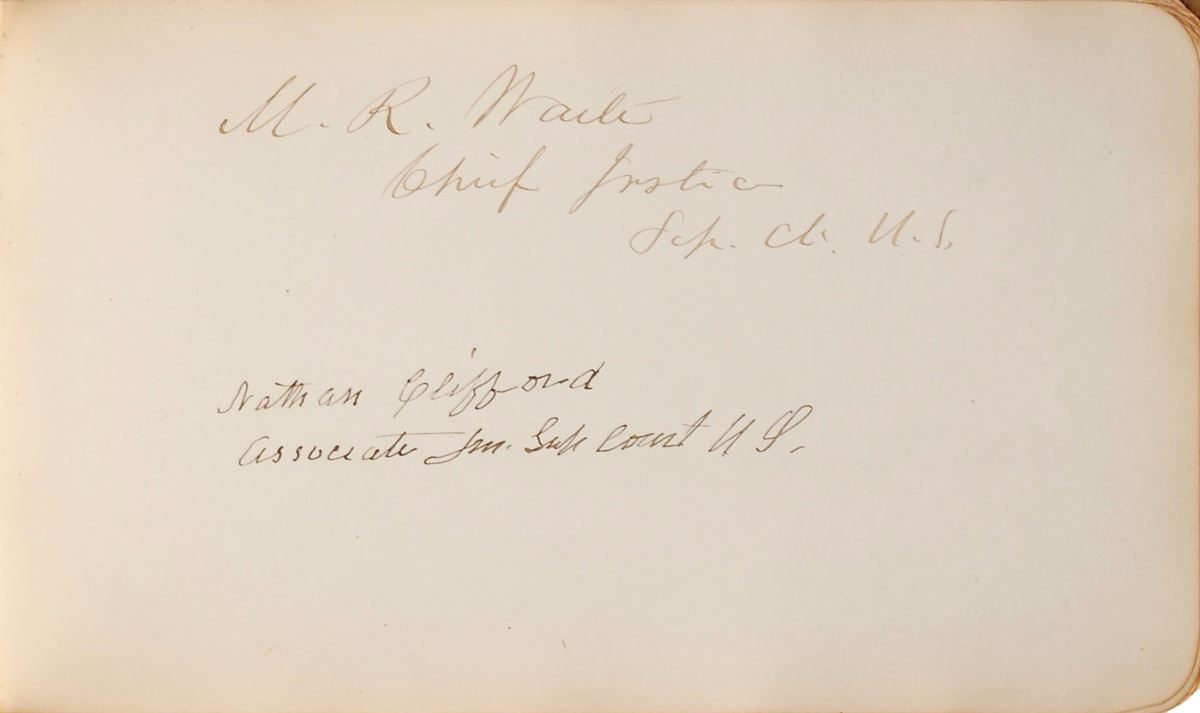 M. R. Waite
Chief Justice
Sup. Ct. U.S.
Nathan Clifford
Associate Jus. Sup Court U S.